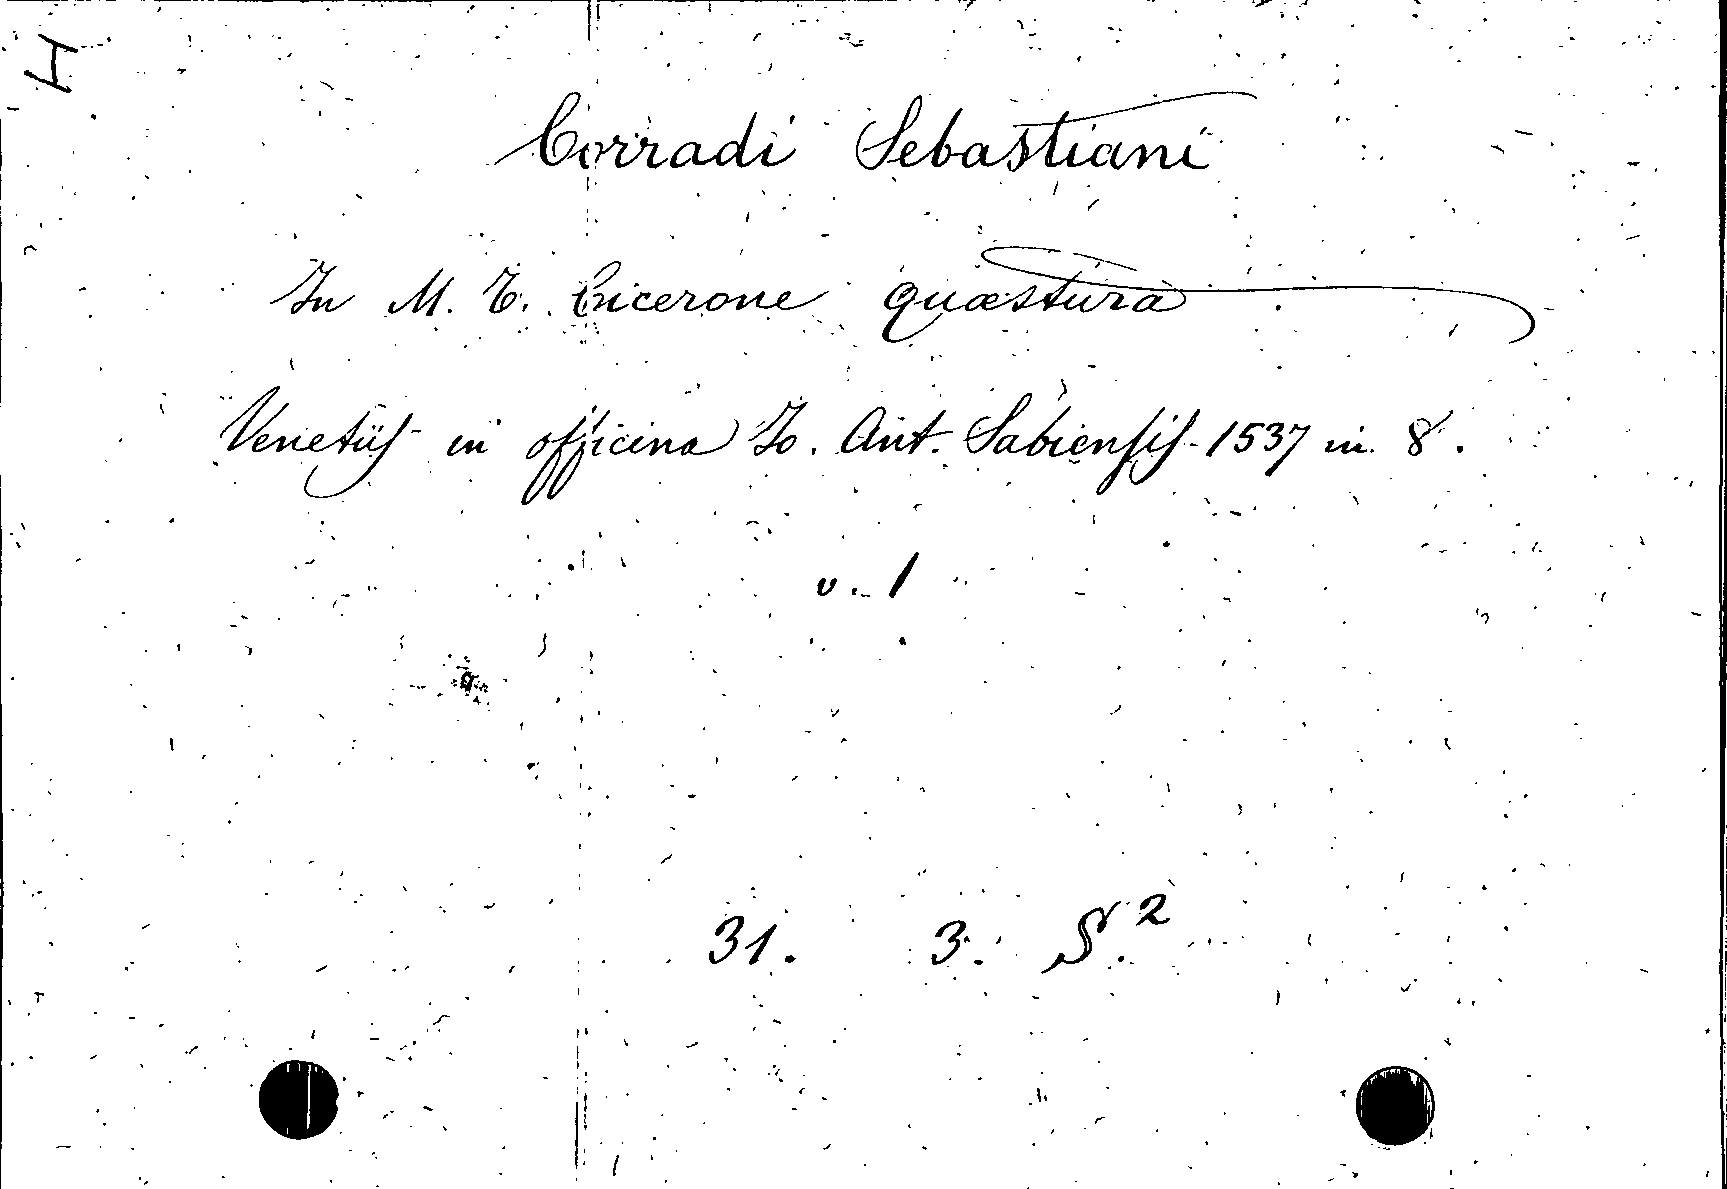 H
Corradi Sebastiani
In M. T. Cicerone quæstura
Venetiis in officina Io. Ant. Sabiensis 1537 in 8.
v. 1
31. 3. S.²